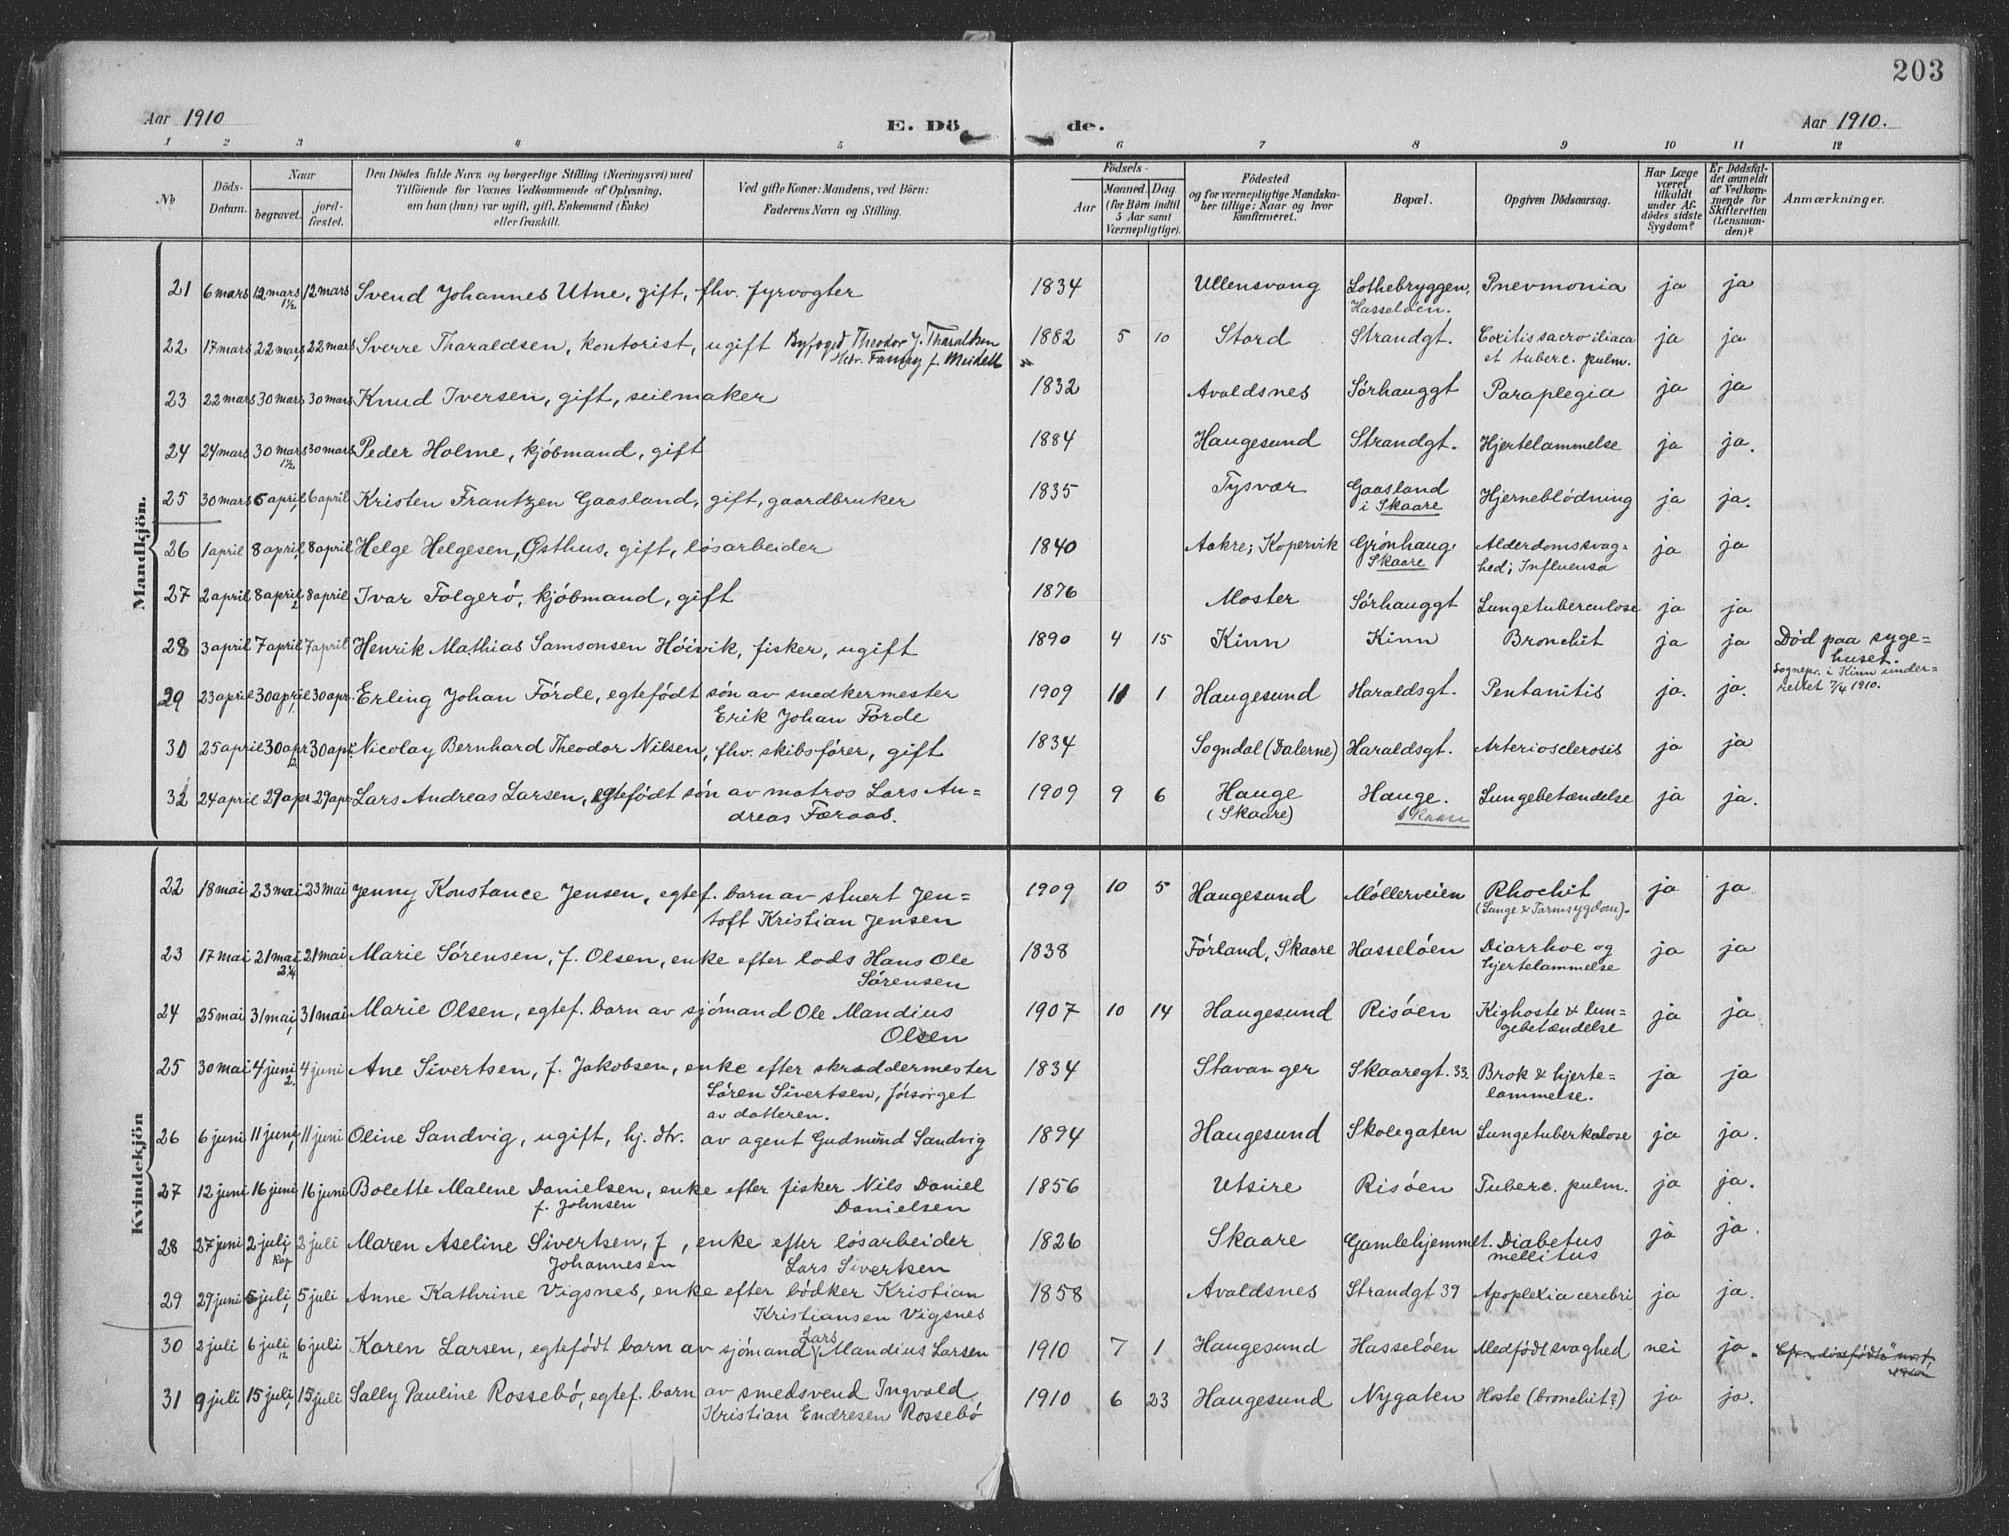 203
Aar 1910
E. Dö
de.
Aar 1910.
1 2 3 4 5 6 7 8 9 10 11 12
№
Döds-Datum.
Naar
begravet.
jord-fæstet.
Den Dödes fulde Navn og borgerlige Stilling (Næringsvei) med
Tilföiende for Voxnes Vedkommende af Oplysning,
om han (hun) var ugift, gift, Enkemand (Enke)
eller fraskilt.
Ved gifte Koner: Mandens, ved Börn:
Faderens Navn og Stilling.
Födsels-
Aar
Maaned Dag
(for Börn indtil
5 Aar samt
Værnepligtige).
Födested
og for værnepligtige Mandska-
ber tillige: Naar og hvor
konfirmeret.
Bopæl.
Opgiven Dödsaarsag.
Har Læge
været
tilkaldt
under Af-
dödes sidste
Sygdom?
Er Dödsfal-
det anmeldt
af Vedkom-
mende for
Skifteretten
(Lensman-
den)?
Anmærkninger.
Mandkjön.
21 6 mars 12 mars 12 mars Svend Johannes Utne, gift, fhv. fyrvogter 1834 Ullensvang Lothebryggen, Pnevmonia ja ja
1½ Hasseløen.
22 17 mars 22 mars 22 mars Sverre Tharaldsen, kontorist, ugift Byfoged Theodor J. Tharaldsen 1882 5 10 Stord Strandgt. Coxitis sacro iliaca ja ja
Htr. Fanny f. Meidell et tuberc. pulm.
23 22 mars 30 mars 30 mars Knud Iversen, gift, seilmaker 1832 Avaldsnes Sörhauggt Paraplegia ja ja
24 24 mars 30 mars 30 mars Peder Holme, kjöbmand, gift 1884 Haugesund Strandgt. Hjertelammelse ja ja.
1½
25 30 mars 6 april 6 april Kristen Frantzen Gaasland, gift, gaardbruker 1835 Tysvær Gaasland Hjerneblödning ja ja.
i Skaare
26 1 april 8 april 8 april Helge Helgesen, Østhus, gift, løsarbeider 1840 Aakre; Kopervik Grønhaug Alderdomssvag= ja ja
Skaare hed; Influensa
27 2 april 8 april 8 april Ivar Folgerö, kjöbmand, gift 1876 Moster Sörhauggt Lungetuberculose ja ja
2
28 3 april 7 april 7 april Henrik Mathias Samsonsen Höivik, fisker, ugift 1890 4 15 Kinn Kinn Bronchit ja ja Död paa syge=
huset.
Sognepr. i Kinn under=
rettet 7/4 1910.
29 23 april 30 april 30 apr. Erling Johan Förde, egtefödt sön av snedkermester 1909 11 1 Haugesund Haraldsgt. Pentanitis ja. ja.
Erik Johan Förde
30 25 april 30 apr 30 apr. Nicolay Bernhard Theodor Nilsen, fhv. skibsförer, gift 1834 Sogndal (Dalerne) Haraldsgt. Arteriosclerosis ja ja
32 24 april 29 apr 29 apr. Lars Andreas Larsen, egtefödt sön av matros Lars An= 1909 9 6 Hauge Hauge. Lungebetændelse ja ja.
dreas Færaas. (Skaare) Skaare
Kvindekjön
22 18 mai 23 mai 23 mai Jenny Konstance Jensen, egtef. barn av stuert Jen= 1909 10 5 Haugesund Møllerveien Rhachit ja ja
toft Kristian Jensen (Lunge & Tarmsygdom).
23 17 mai 21 mai 21 mai Marie Sørensen, f. Olsen, enke efter lods Hans Ole 1838 Førland, Skaare Hasseløen Diarrhoe og ja ja
Sørensen hjertelammelse
24 25 mai 31 mai 31 mai Marie Olsen, egtef. barn av sjömand Ole Mandius 1907 10 14 Haugesund Risöen Kighoste & lun= ja ja
Olsen gebetændelse
25 30 mai 4 juni 4 juni Ane Sivertsen, f. Jakobsen, enke efter skræddermester 1834 Stavanger Skaaregt. 33. Brok & hjerte= ja ja
2. Sören Sivertsen, forsørget lammelse.
av datteren.
26 6 juni 11 juni 11 juni Oline Sandvig, ugift, hj. dtr. av agent Gudmund Sandvig 1894 Haugesund Skolegaten Lungetuberkulose ja ja.
27 12 juni 16 juni 16 juni Bolette Malene Danielsen, enke efter fisker Nils Daniel 1856 Utsire Risöen Tuberc. pulm. ja ja.
f. Johnsen Danielsen
28 27 juni 2 juli 2 juli Maren Aseline Sivertsen, f , enke efter løsarbeider 1826 Skaare Gamlehjemmet. Diabetus ja ja.
Kap Johannesen Lars Sivertsen mellitus
29 29 juni 5 juli 5 juli Anne Kathrine Vigsnes, enke efter bödker Kristian 1858 Avaldsnes Strandgt 39 Apoplexia cerebri ja ja.
Kristiansen Vigsnes
30 2 juli 6 juli 6 juli Karen Larsen, egtefödt barn av sjömand Lars Mandius Larsen 1910 7 1 Haugesund Hasseløen Medfödt svaghed nei ja.
12
31 9 juli 15 juli 15 juli Sally Pauline Rossebö, egtef. barn av smedsvend Ingvald 1910 6 23 Haugesund Nygaten Hoste (bronchit?) ja ja.
Kristian Endresen Rossebö